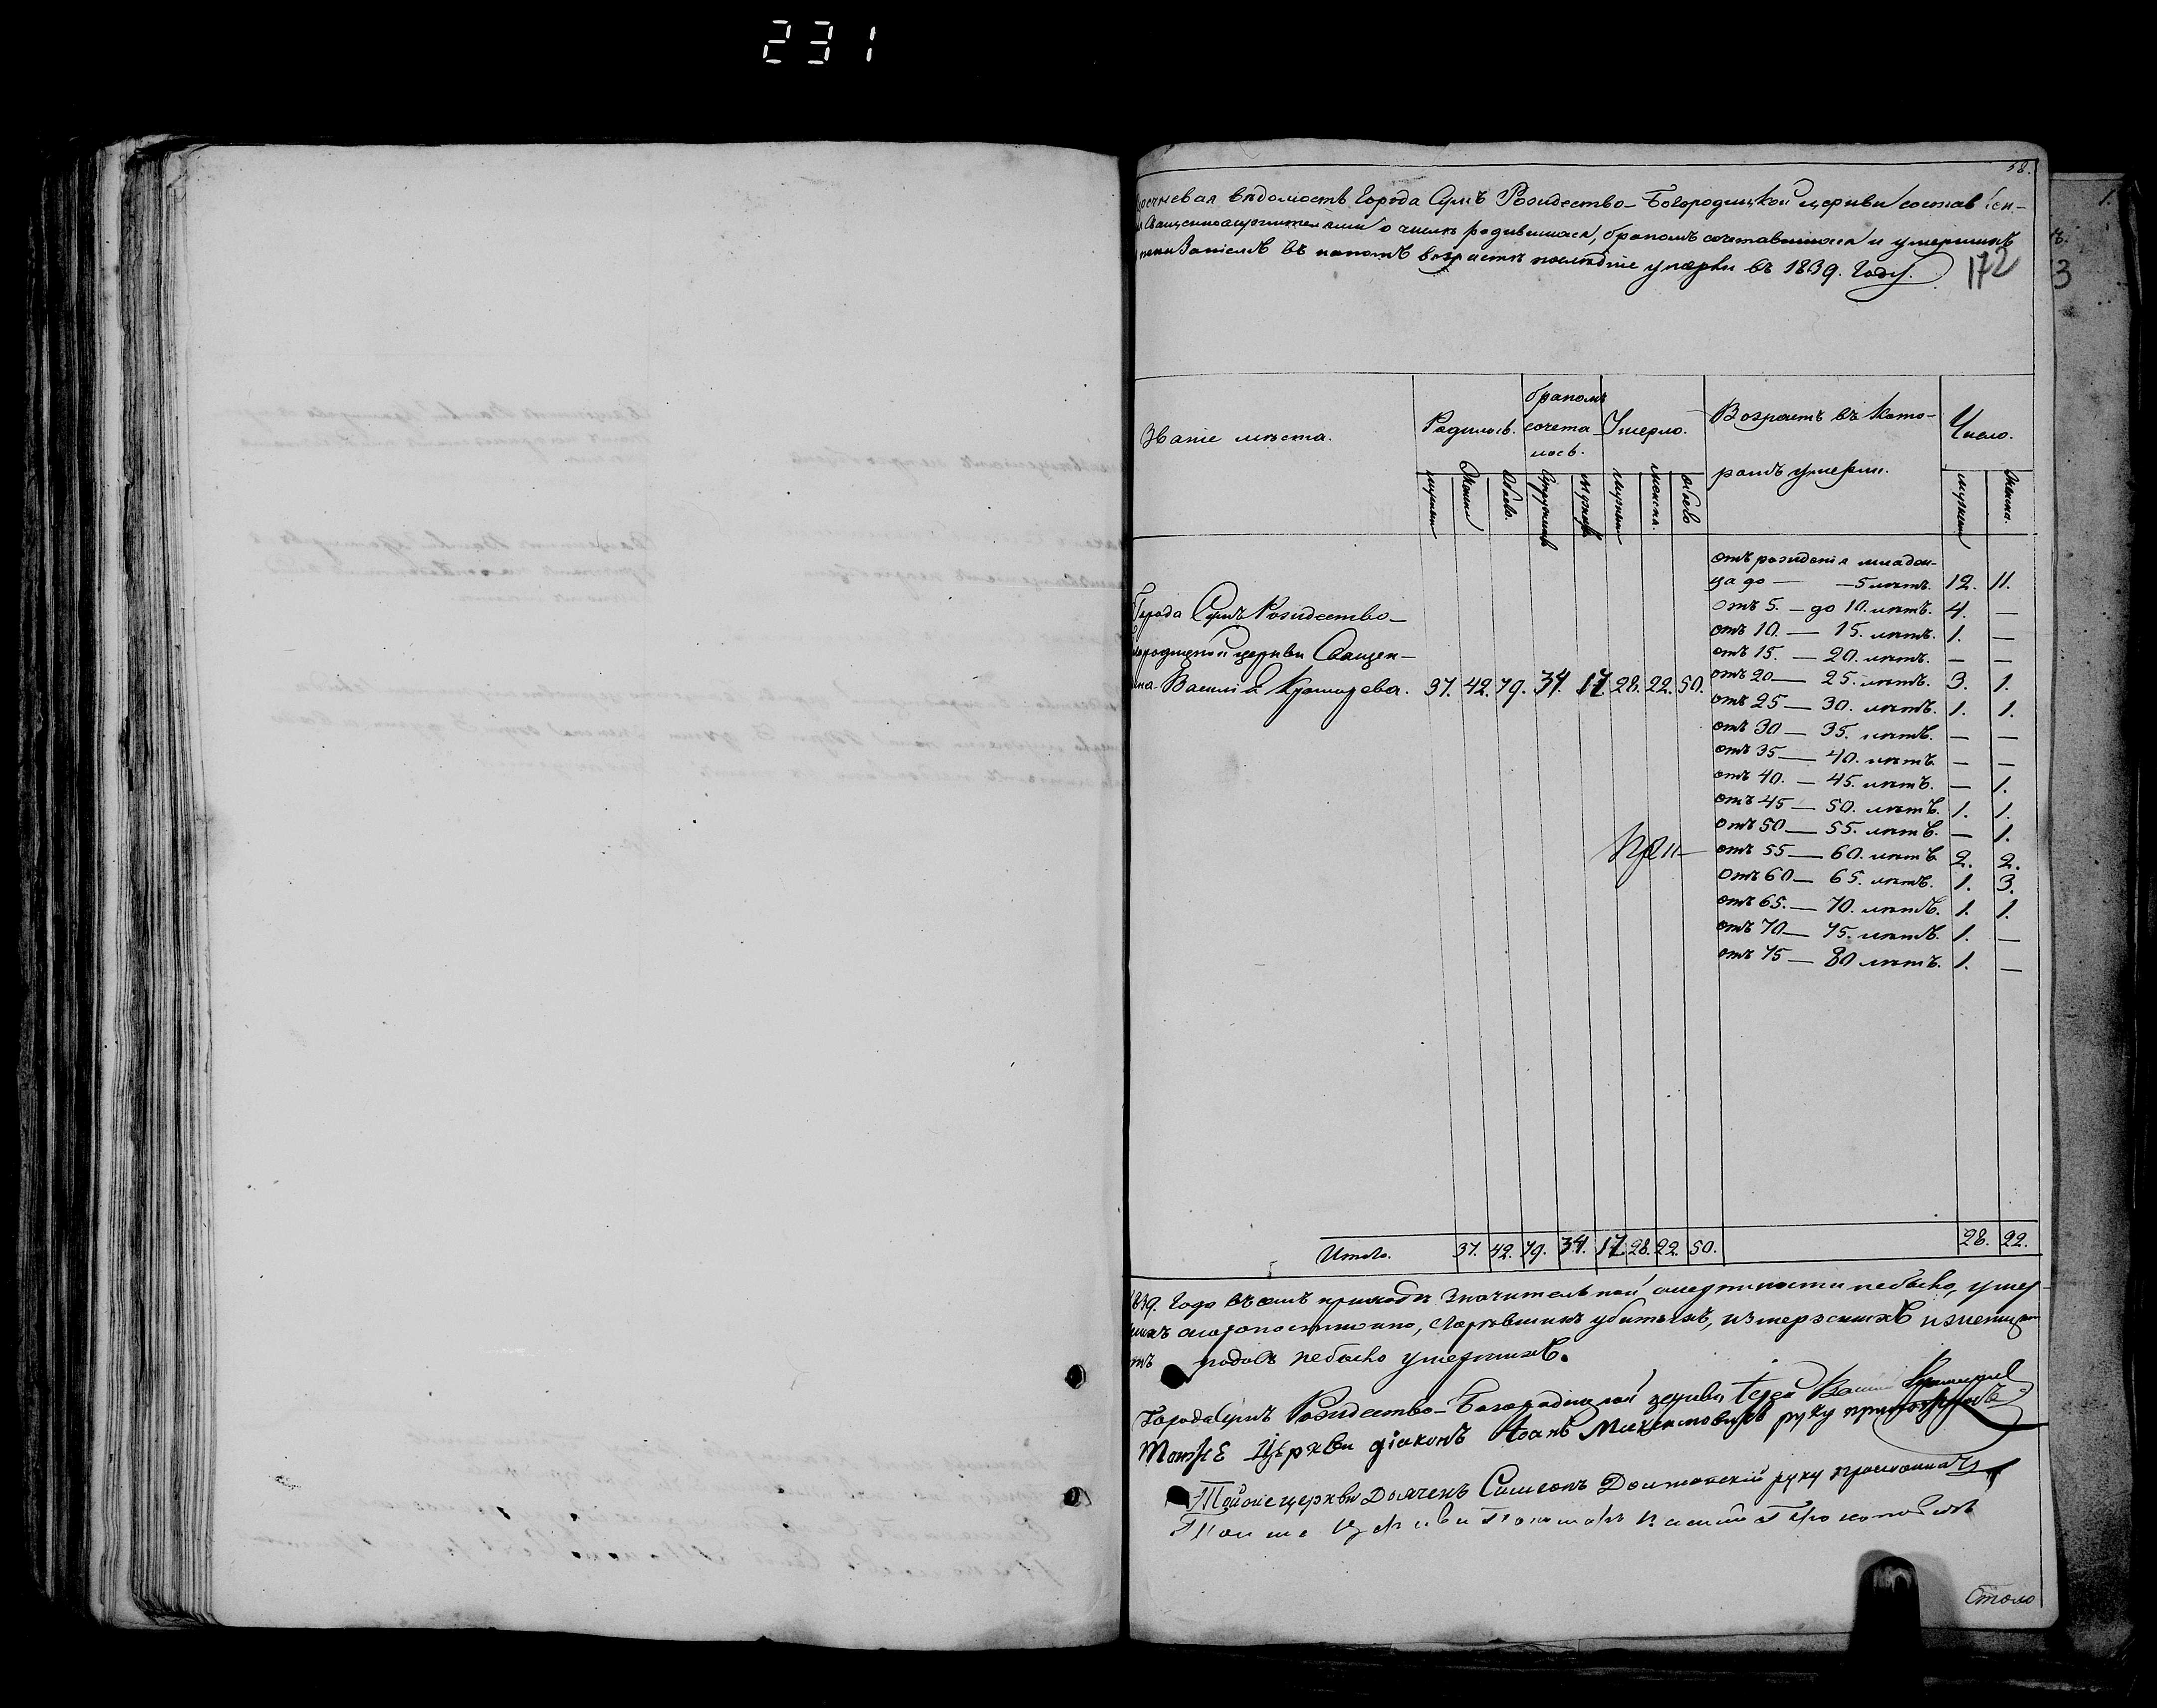 231
58.
Перечневая вѣдомость Города Сумъ Рождество-Богородицкой церкви составлен-
Священнослужителями о числѣ родившихся, бракомъ сочетавшихся и умершихъ
въ какомъ возрастѣ послѣдніе умерли въ 1839. Году.
172
3
Званіе мѣста.
Родилось.
бракомъ сочета-
лось.
Умерло.
Возрастъ въ кото-
ромъ умерли.
Число.
мужеск
Женск
Обоего.
Супружествъ
мужеск
женска.
обоего
мужеск
Женска.
отъ рожденія младен-
ца до — — 5 лѣтъ. 12. 11.
отъ 5. — до 10. лѣтъ. 4. —
отъ 10. — 15. лѣтъ. 1. —
отъ 15. — 20. лѣтъ. — —
отъ 20 — 25. лѣтъ. 3. 1.
отъ 25 — 30. лѣтъ. 1. 1.
отъ 30 — 35. лѣтъ. — —
отъ 35 — 40. лѣтъ. — —
отъ 40. — 45. лѣтъ. — 1.
отъ 45 — 50. лѣтъ. 1. 1.
отъ 50 — 55. лѣтъ. — 1.
отъ 55 — 60. лѣтъ 2. 2.
отъ 60 — 65. лѣтъ. 1. 3.
отъ 65. — 70. лѣтъ. 1. 1.
отъ 70 — 75. лѣтъ. 1. —
отъ 75 — 80 лѣтъ. 1. —
Города Сумъ Рождество-
городицкой церкви Священ-
ника Василія 37. 42. 79. 34. 17. 28. 22. 50.
Итого. 37. 42. 79. 34. 17. 28. 22. 50. 28. 22.
1839. Года въ семъ приходѣ значительной смертности небыло, умер-
шихъ скоропостижно, сгорѣвшихъ убитыхъ, измерзшихъ
родовъ небыло умершихъ.
Города Сумъ Рождество-Богородицкой церкви Іерей
Тоя же Церкви діаконъ Іоанъ Максимовичъ руку приложилъ
Тойже церкви Дьячекъ Симеонъ руку приложилъ
Тойже Церкви Пономарь
Столо